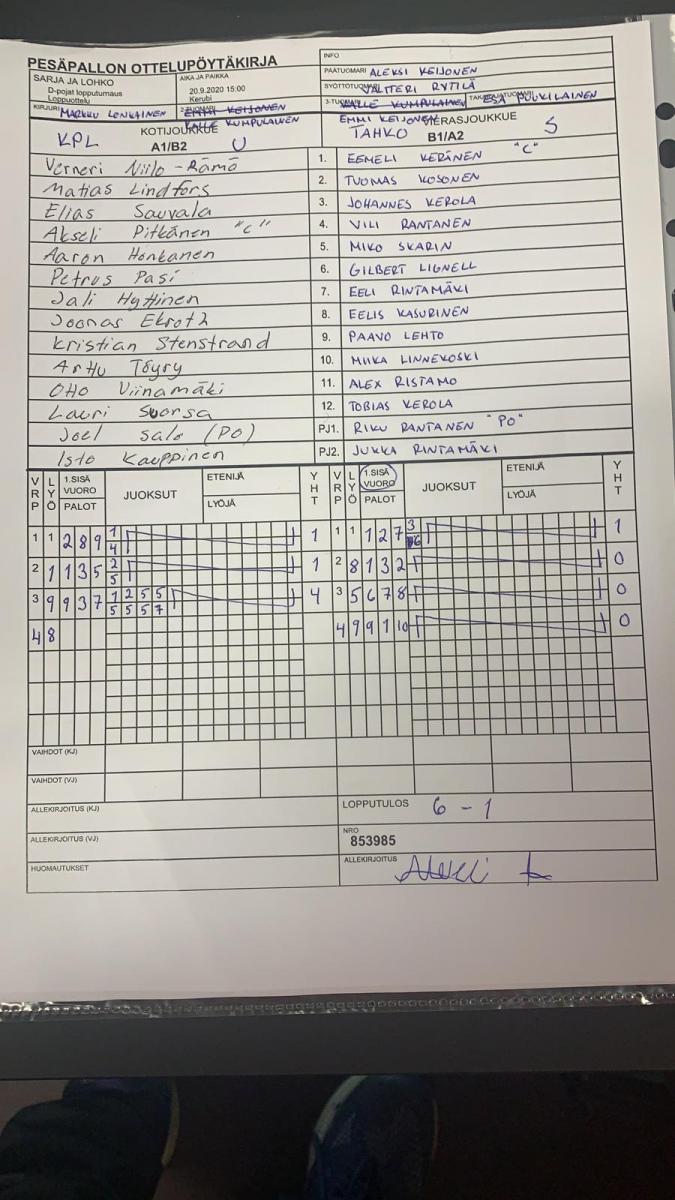 PESÄPALLON OTTELUPÖYTÄKIRJA
INFO
SARJA JA LOHKO
D-pojat lopputurnaus
Loppuottelu
AIKA JA PAIKKA
20.9.2020 15:00
Kerubi
PÄÄTUOMARI ALEKSI KEIJONEN
SYÖTTÖTUOMARI VALTTERI RYTILÄ
KIRJURI MARKKU LONKAINEN
2-TUOMARI EMMI KEIJONEN
KALLE KUMPULAINEN
3-TUOMARI KALLE KUMPULAINEN
EMMI KEIJONEN
TAKARAJATUOMARI ESA PUUKILAINEN
KPL KOTIJOUKKUE A1/B2 U
TAHKO VIERASJOUKKUE B1/A2 S
Verneri Niilo-Rämä 1. EEMELI KERÄNEN "C"
Matias Lindfors 2. TUOMAS KOSONEN
Elias Sauvala 3. JOHANNES KEROLA
Akseli Pitkänen "C" 4. VILI RANTANEN
Aaron Honkanen 5. MIKO SKARIN
Petrus Pasi 6. GILBERT LIGNELL
Jali Hyttinen 7. EELI RINTAMÄKI
Joonas Ekroth 8. EELIS KASURINEN
Kristian Stenstrand 9. PAAVO LEHTO
Arttu Töyry 10. MIIKA LINNEKOSKI
Otto Viinamäki 11. ALEX RISTAMO
Lauri Suorsa 12. TOBIAS KEROLA
Joel Salo (PO) PJ1. RIKU RANTANEN "PO"
Isto Kauppinen PJ2. JUKKA RINTAMÄKI
VRP LYÖ 1.SISÄ VUORO PALOT JUOKSUT ETENIJÄ LYÖJÄ YHT VRP LYÖ 1.SISÄ VUORO PALOT JUOKSUT ETENIJÄ LYÖJÄ YHT
1 1 2 8 9 1 4 1 1 1 1 2 7 3 6 1
2 1 1 3 5 2 5 1 2 8 1 3 2 0
3 9 9 3 7 1 2 5 5 5 5 5 7 4 3 5 6 7 8 0
4 8 4 9 9 1 10 0
VAIHDOT (KJ)
VAIHDOT (VJ)
ALLEKIRJOITUS (KJ)
LOPPUTULOS 6 - 1
ALLEKIRJOITUS (VJ)
NRO
853985
HUOMAUTUKSET
ALLEKIRJOITUS